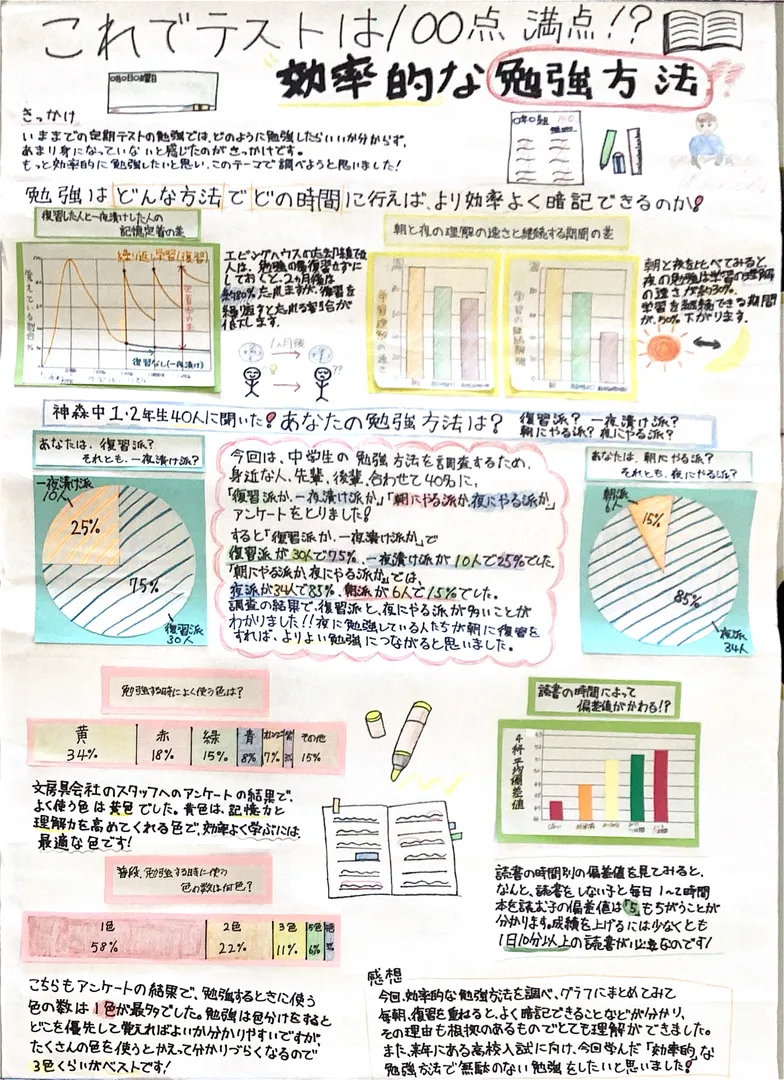 これでテストは100点満点!?
効率的な勉強方法
きっかけ
いままでの定期テストの勉強では、どのように勉強したらいいか分からず、
あまり身になっていないと感じたのがきっかけです。
もっと効率的に勉強したいと思い、このテーマで調べようと思いました!
勉強はどんな方法でどの時間に行えば、より効率よく暗記できるのか!
復習した人と一夜漬けした人の
記憶定着の差
繰り返し学習(復習)
定着率の差
覚えている割合
復習なし(一夜漬け)
エビングハウスの忘却曲線では
人は、勉強の最復習せずに
しておくと、2ヶ月後は
約80%忘れますが、復習を
繰返すと忘れる割合が
低下します。
1ヵ月後
朝と夜の理解の速さと継続する期間の差
学習理解の速さ
学習の継続期間
朝と夜を比べてみると、
夜の勉強は学習の理解
の速さが約30%、
学習を継続できる期間
が、50%下がります。
神森中1・2年生40人に聞いた!あなたの勉強方法は?
復習派? 一夜漬け派?
朝にやる派?夜にやる派?
あなたは、復習派?
それとも、一夜漬け派?
一夜漬け派
10人
25%
75%
復習派
30人
今回は、中学生の勉強方法を調査するため、
身近な人、先輩、後輩、合わせて40名に、
「復習派か、一夜漬け派か」「朝にやる派か夜にやる派か」
アンケートをとりました!
すると「復習派か、一夜漬け派か」で
復習派が30人で75%、一夜漬け派が10人で25%でした。
「朝にやる派か、夜にやる派か」では、
夜派が34人で85%、朝派が6人で15%でした。
調査の結果で、復習派と、夜にやる派が多いことが
わかりました!!夜に勉強している人たちが朝に復習を
すれば、よりよい勉強につながると思いました。
あなたは、朝にやる派?
それとも、夜にやる派?
朝派
6人
15%
85%
夜派
34人
勉強する時によく使う色は?
黄 赤 緑 青 オレンジ 紫 その他
34% 18% 15% 8% 7% 3% 15%
文房具会社のスタッフへのアンケートの結果で、
よく使う色は黄色でした。黄色は、記憶力と
理解力を高めてくれる色で、効率よく学ぶには、
最適な色です!
普段、勉強する時に使う
色の数は何色?
1色 2色 3色 5色
58% 22% 11% 6%
こちらもアンケートの結果で、勉強するときに使う
色の数は1色が最多でした。勉強は色分けをすると
どこを優先して覚えればよいか分かりやすいですが、
たくさんの色を使うとかえって分かりづらくなるので
3色くらいがベストです!
読書の時間によって
偏差値がかわる!?
4科平均偏差値
読書の時間別の偏差値を見てみると、
なんと、読書をしない子と毎日1〜2時間
本を読む子の偏差値は「5」もちがうことが
分かります。成績を上げるには少なくとも
1日10分以上の読書が必要なのです!
感想
今回、効率的な勉強方法を調べ、グラフにまとめてみて
毎朝、復習を重ねると、よく暗記できることなどが分かり、
その理由も根拠のあるものでとても理解ができました。
また、来年にある高校入試に向け、今回学んだ「効率的」な
勉強方法で無駄のない勉強をしたいと思いました!